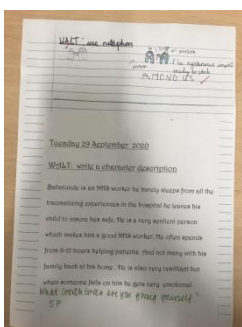 WALT: use metaphors
person
person
The mysterious
ready to
AMONG US
Tuesday 29 September 2020
WALT: write a character description
is an NHS worker he barely sleeps from all the
traumatising experiences in the hospital he leaves his
child to insure hes safe. He is a very sentient person
which makes him a good NHS worker. He often spends
from 5-12 hours helping patients. And not many with his
family back at his home. He is also very resilient but
when someone fails on him he gets very emotional
What are you giving yourself?
S P